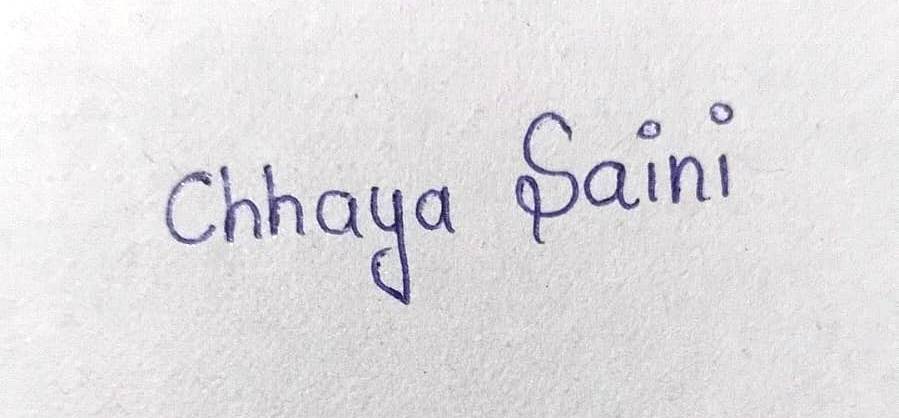 Chhaya Saini